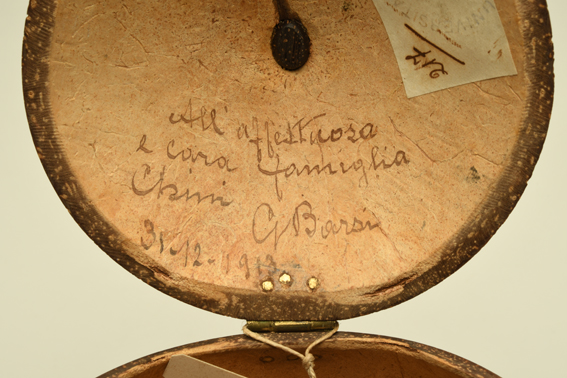 217
All' affettuosa
e cara famiglia
Chini
G Barsi
31-12-1913